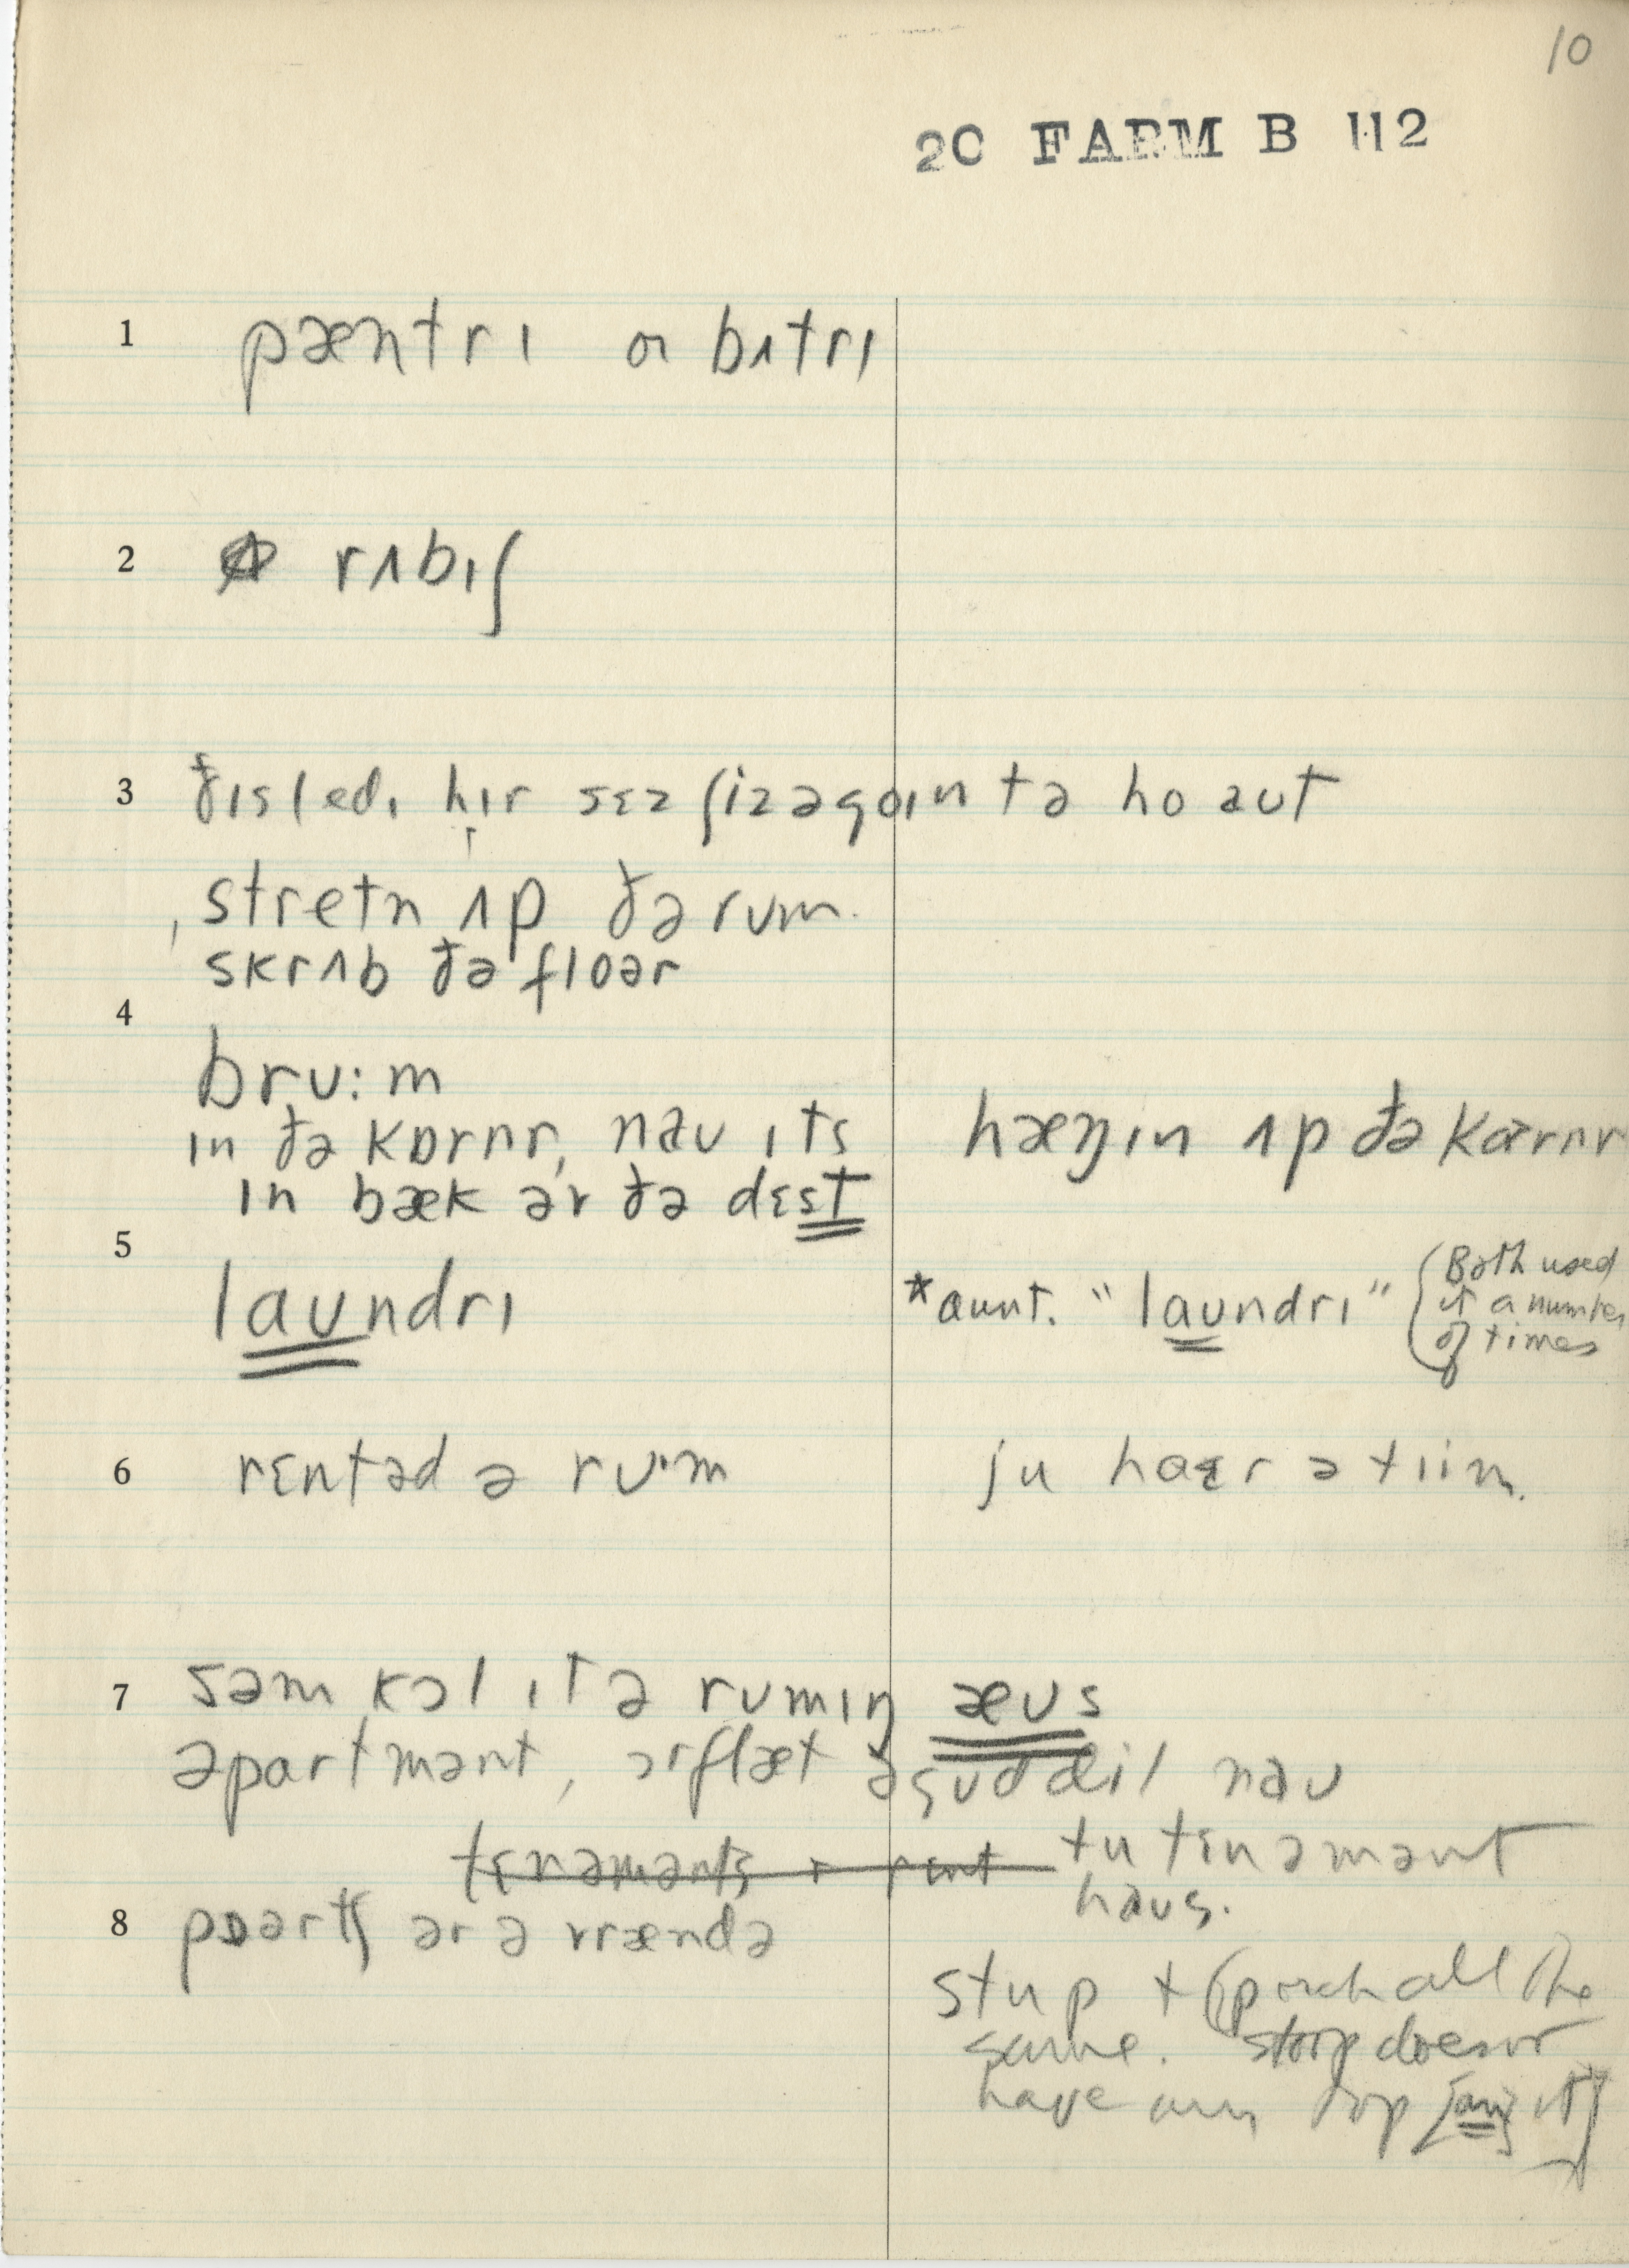 10
20 FARM B 112
1 pæntrɪ or bʌtrɪ
2 rʌbɪʃ
3 ðɪs ledɪ hɪr sɛz ʃiz əgoɪn tə ho aut
stretn ʌp ðə rum.
skrʌb ðə floər
4
brʊ:m
ɪn ðə kɒrnr, naʊ ɪts hæŋɪn ʌp ðə kɑrnr
ɪn bæk ər ðə dɛst
5
laʊndrɪ *aunt. "laʊndrɪ" (Both used it a number of times
6 rɛntəd ə rʊ·m ju haɛr ə tiim.
7 səm kɔl ɪt ə rumɪŋ æʊs
əpartmənt, ɔrflæt ə naʊ
tɛnəmənts + rɛnt tu tɛnəmənt
haʊs.
8 pɒərtʃ ər ə vrændə
stup + (porch all the
same. stoop doesn't
have any top [an] it]